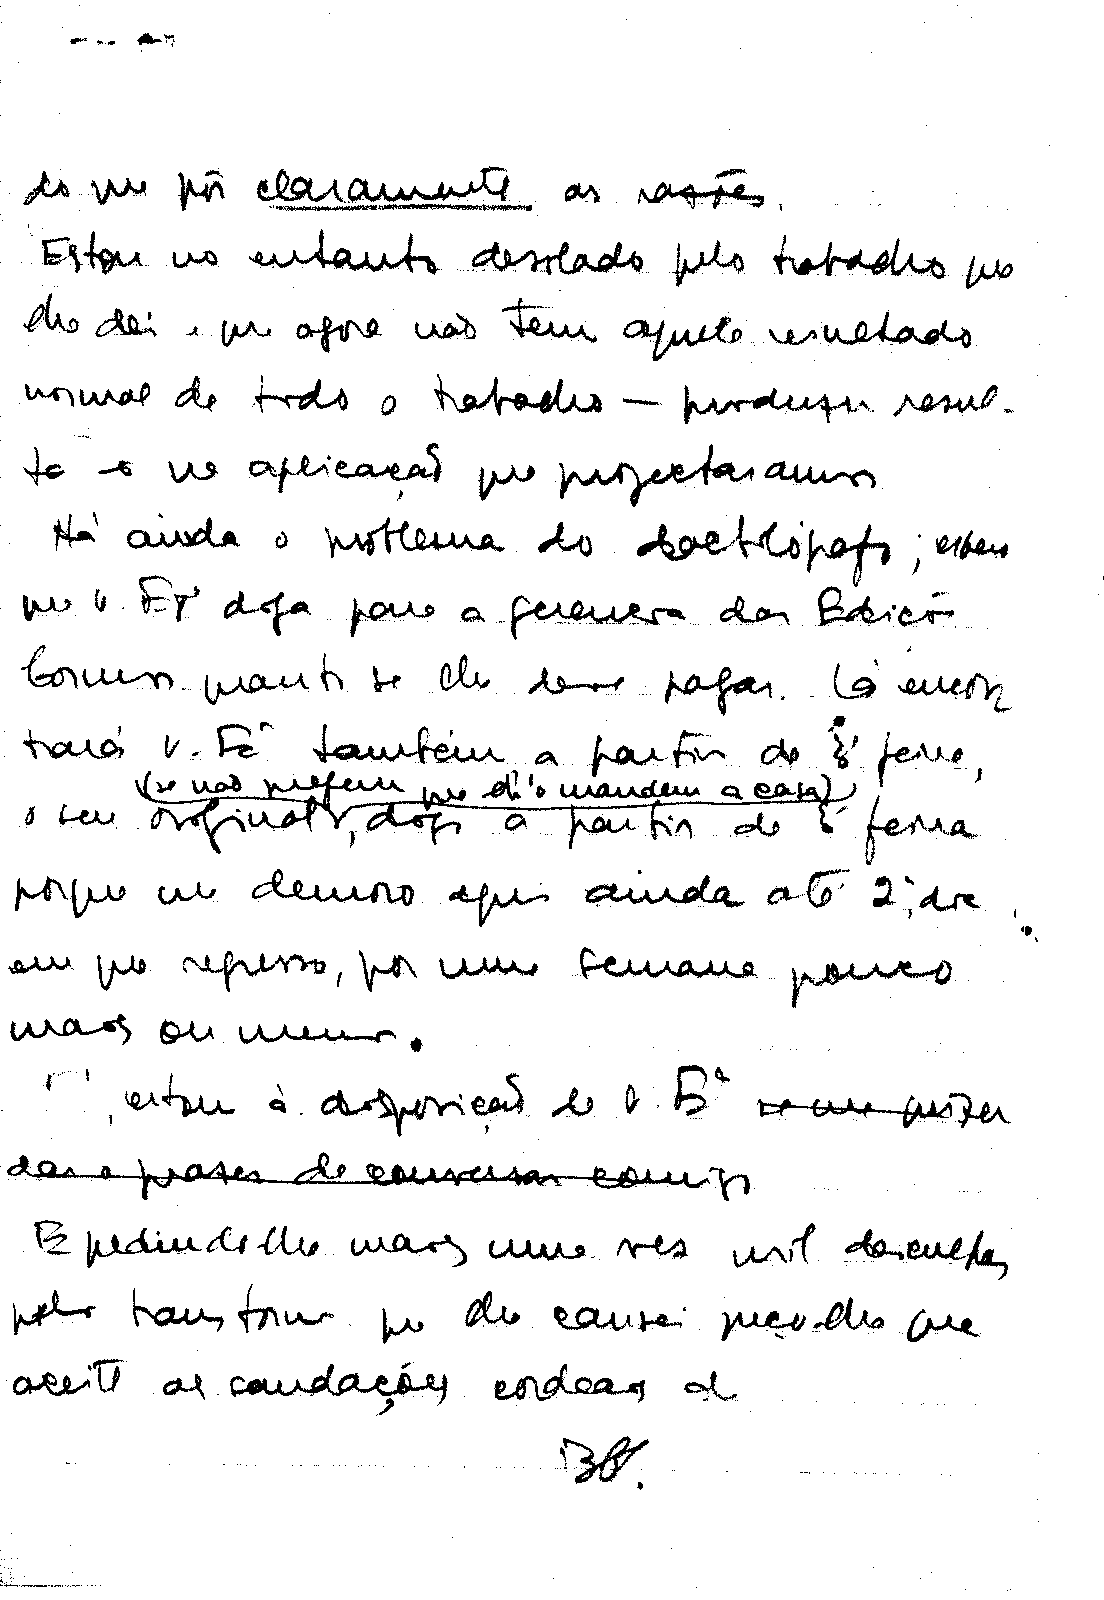 do que pôr claramente as razões.
Estou no entanto desolado pelo trabalho que
lhe dei e que agora não tem aquele resultado
normal de todo o trabalho — produzir resul-
ta na aplicação que projectaramos
Há ainda o problema do dactilógrafo; espero
que V. Exª diga para a gerencia das Edições
Cosmos quanto se lhe deve pagar. Lá encon
trará V. Exª também a partir de 3ª feira,
(se não preferir que lh'o mandem a casa)
o seu original, digo a partir de 3ª feira
porque me demoro aqui ainda até 2ª, dia
em que regresso, por uma semana pouco
mais ou menos.
estou à disposição de V. Exª se me quizer
dar o prazer de conversar comigo
E pedindo-lhe mais uma vez mil desculpas
pelo transtorno que lhe causei peço-lhe que
aceite as saudações cordeais de